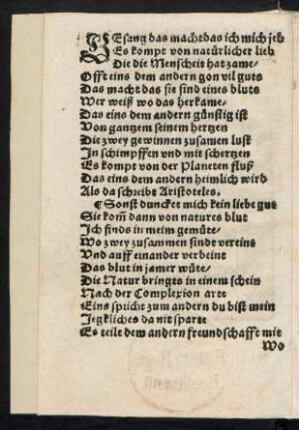 GEsang das macht das ich mich seb
Es kompt von natürlicher lieb
Die die Menscheit hat zame/
Offt eins dem andern gon vil guts
Das macht das sie sind eines bluts
Wer weiß wo das her kame/
Das eins dem andern günstig ist
Von gantzem seinem hertzen
Die zwey gewinnen zusamen lust
In schimpffen vnd mit schertzen
Es kompt von der Planeten fluß
Das eins dem andern heimlich wird
Als da schreibt Aristoteles.
¶ Sonst duncket mich kein liebe gut
Sie kom̄ dann von natures blut
Ich finds in meim gemüte/
Wo zwey zusammen sindt vereint
Vnd auff einander verbeint
Das blut in jamer wüte/
Die Natur bringts in einem schein
Nach der Complexion arte
Eins spricht zum andern du bist mein
Jegkliches da nit sparte
Es teilt dem andern freundschafft mit
Wo